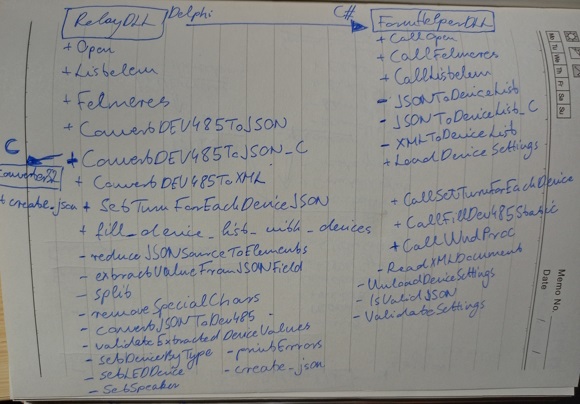 RelayDLL Delphi C# FormHelperDLL
+ Open
+ Listelem
+ Felmeres
+ ConvertDEV485ToJSON
C
+ ConvertDEV485ToJSON_C
Converter32
+ ConvertDEV485ToXML
+ create_json
+ SetTurnForEachDeviceJSON
+ fill_device_list_with_devices
- reduceJSONSourceToElements
- extractValueFromJSONField
- split
- removeSpecialChars
- convertJSONToDev485
- validateExtractedDeviceValues
- setDeviceByType - printErrors
- setLEDDevice - create_json
- SetSpeaker
+ CallOpen
+ CallFelmeres
+ CallListelem
- JSONToDeviceList
- JSONToDeviceList_C
- XMLToDeviceList
+ LoadDeviceSettings
+ CallSetTurnForEachDevice
+ CallFillDev485Static
+ CallWndProc
- ReadXMLDocument
- UnloadDeviceSettings
- IsValidJSON
- ValidateSettings
Mo Tu We Th Fr Sa Su
Memo No.
Date / /